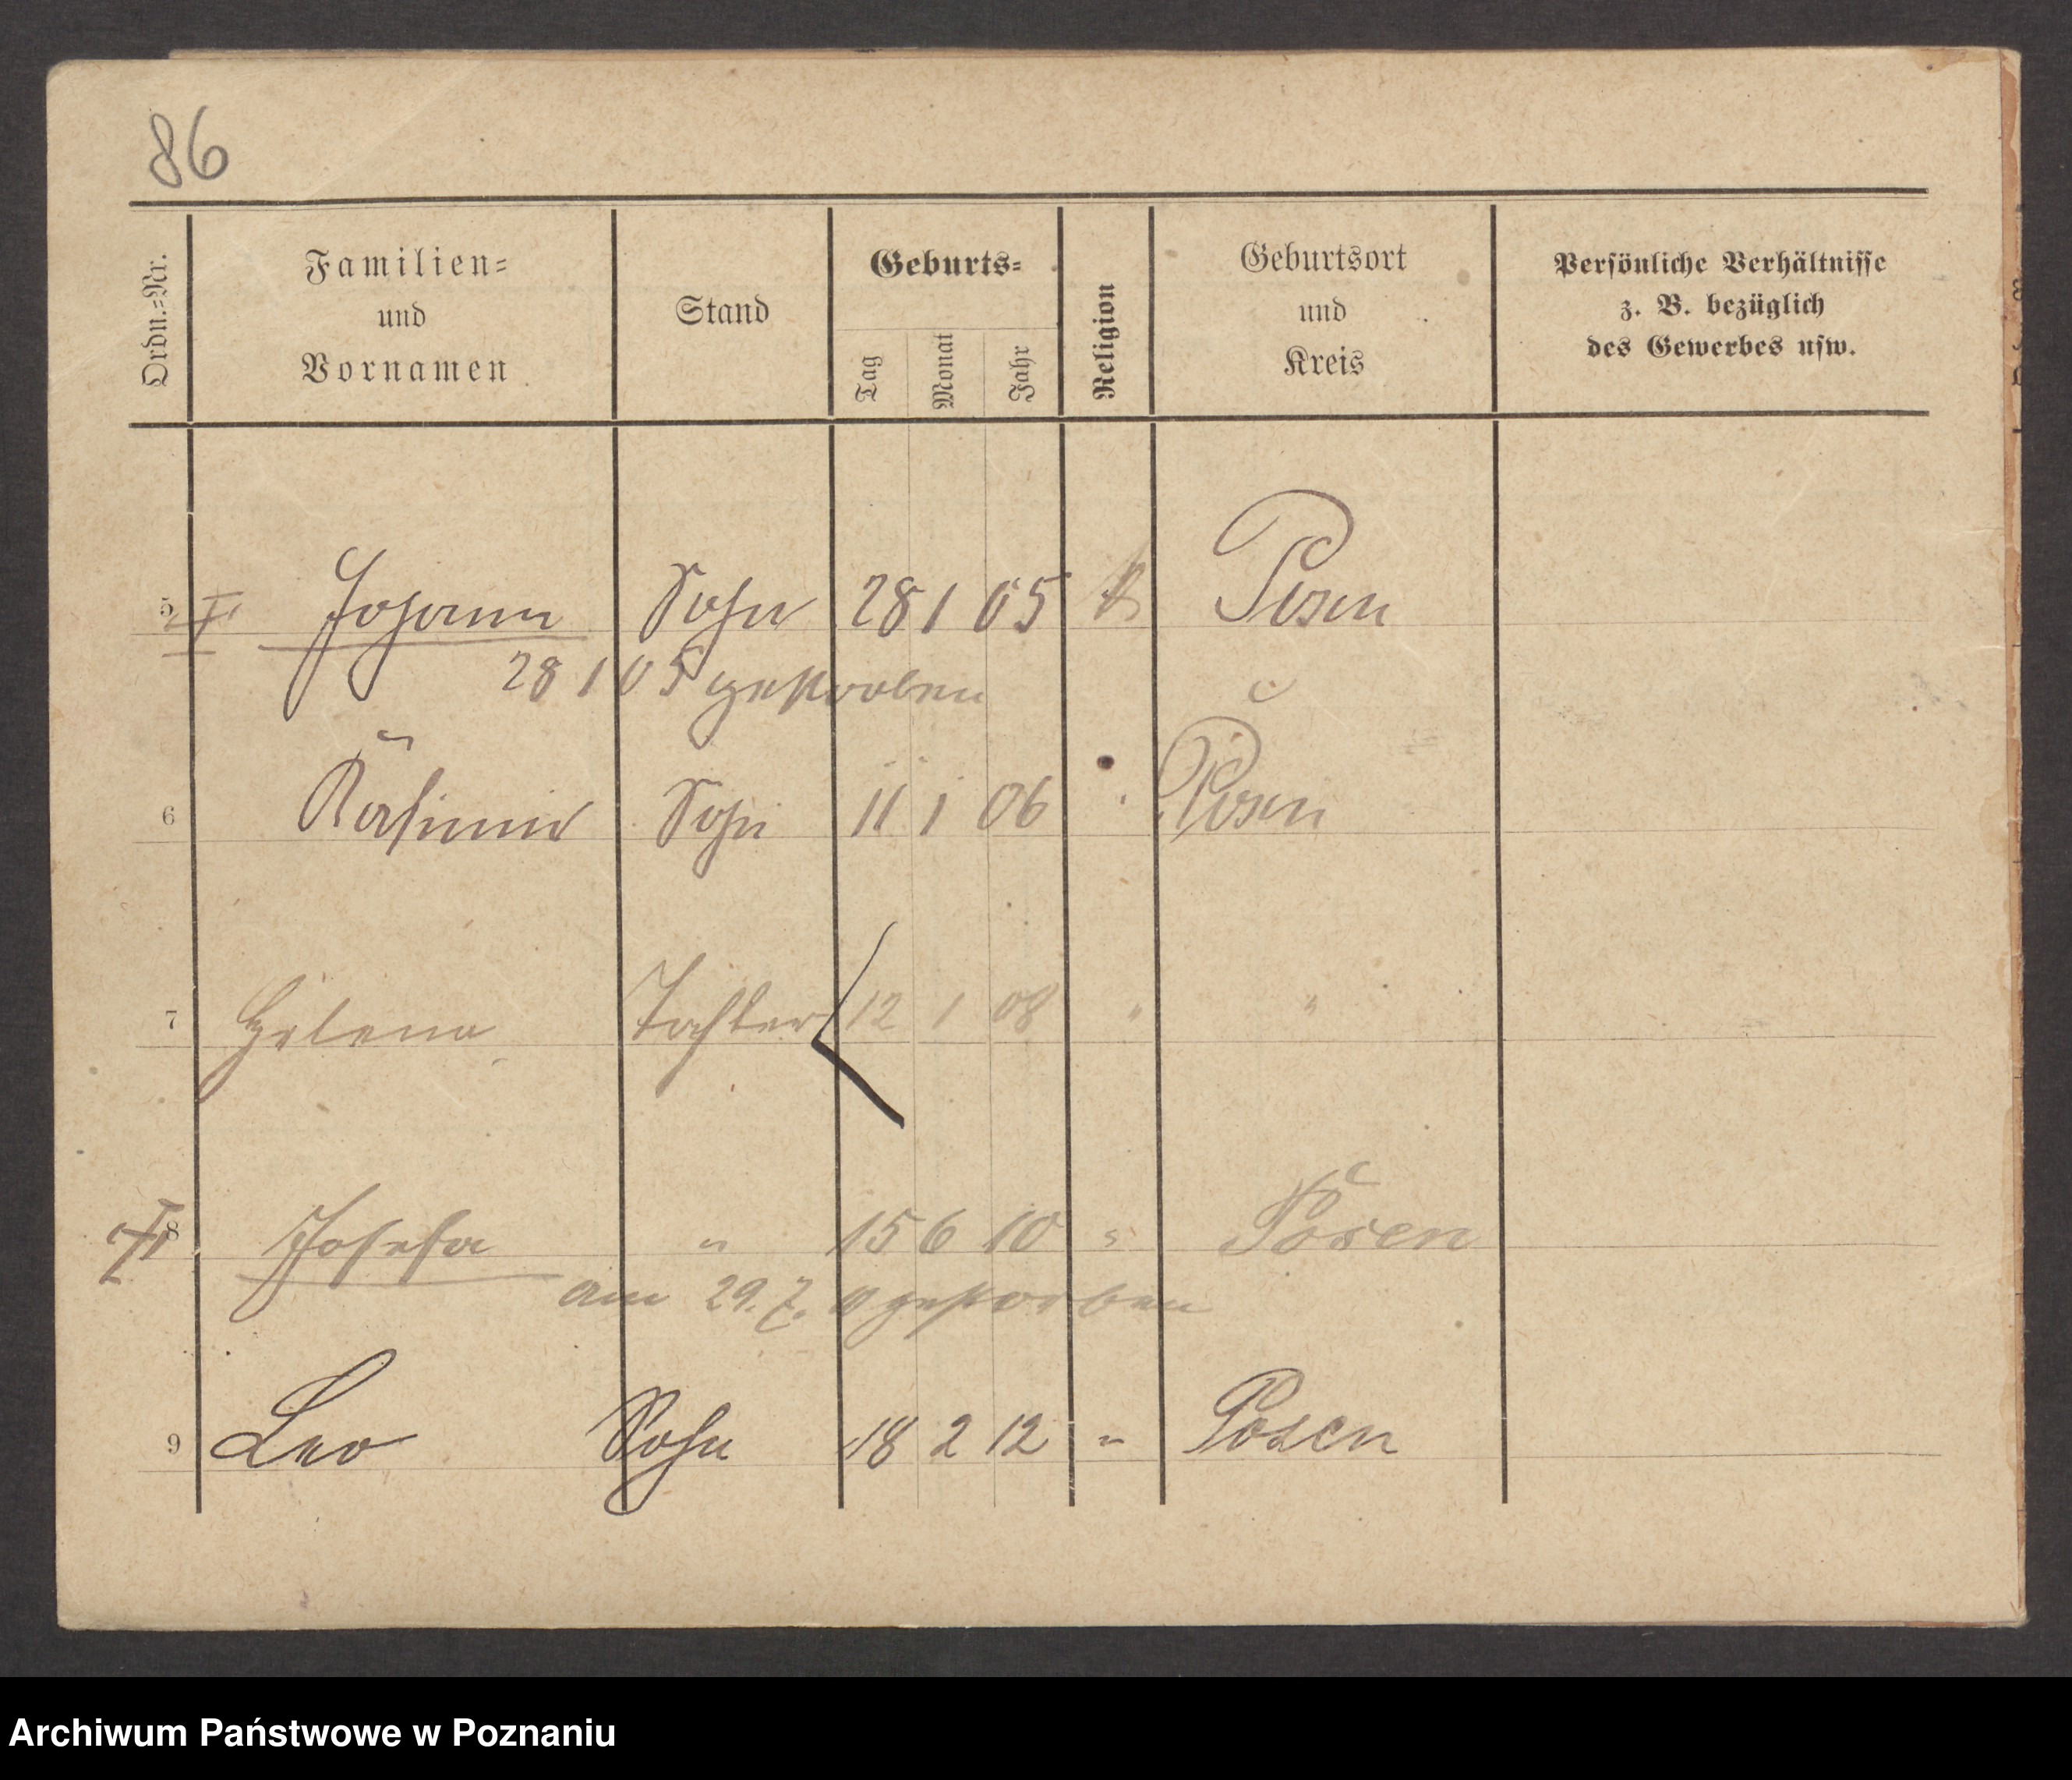 86
Ordn.=Nr.
Familien=
und
Vornamen
Stand
Geburts=
Tag
Monat
Jahr
Religion
Geburtsort
und
Kreis
Persönliche Verhältnisse
z. B. bezüglich
des Gewerbes usw.
5 Johann Sohn 28 1 05 k Posen
28 1 05 gestorben
6 Kasimir Sohn 11 1 06 Posen
7 Helena Tochter 12 1 08 " "
8 Josefa " 15 6 10 " Posen
am 29.7. gestorben
9 Leo Sohn 18 2 12 " Posen
Archiwum Państwowe w Poznaniu